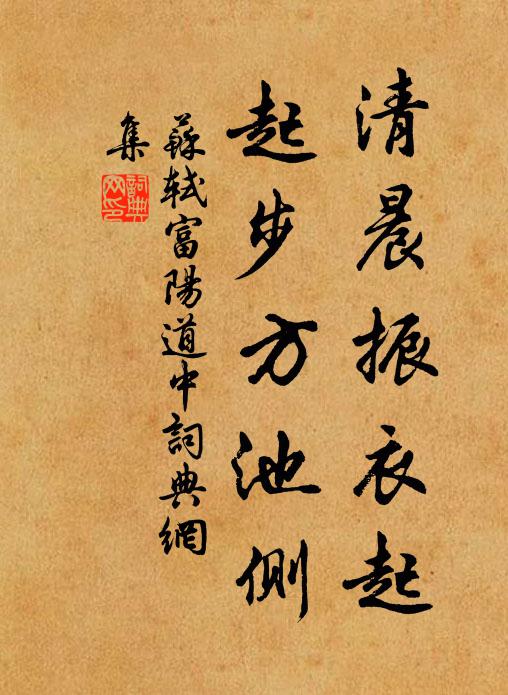 清晨振衣起
起步方池側
蘇軾富陽道中詞典網
集
詞典
网印